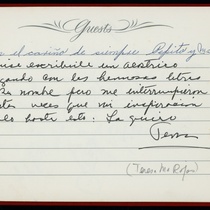 Guests
el cariño de siempre Pepito y
quise escribirle un acróstico
jugando con las hermosas letras
su nombre pero me interrumpieron
tantas veces que mi inspiración
solo hasta esto: La quiero
Teresa
(Teresita Rojas)